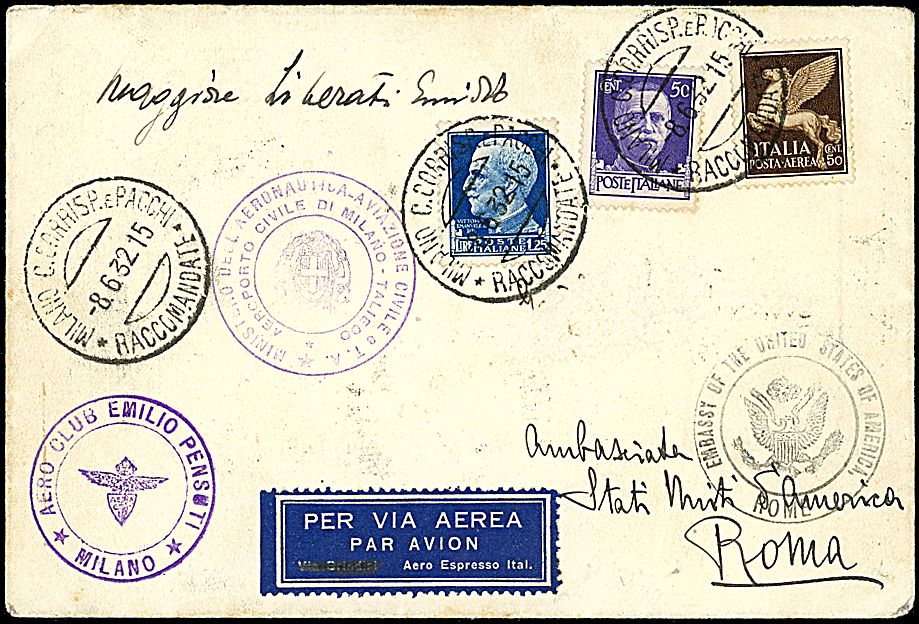 Maggiore Liberati Emilio
MILANO C. CORRISP. E PACCHI
-8.6.32-15
* RACCOMANDATE *
MILANO C. CORRISP. E PACCHI
-8.6.32-15
* RACCOMANDATE *
MILANO C. CORRISP. E PACCHI
8.6.32-15
RACCOMANDATE
CENT. 50
POSTE ITALIANE
ITALIA
POSTA-AEREA
CENT. 50
VITTORIO EMANUELE
LIRE POSTE 1.25
ITALIANE
DELL'AERONAUTICA-AVIAZIONE CIVILE e T. A.
AEROPORTO CIVILE DI MILANO - TALIEDO
EMBASSY OF THE UNITED STATES OF AMERICA
ROME
AERO CLUB EMILIO PENSUTI
* MILANO *
Ambasciata
Stati Uniti d'America
Roma
PER VIA AEREA
PAR AVION
Aero Espresso Ital.